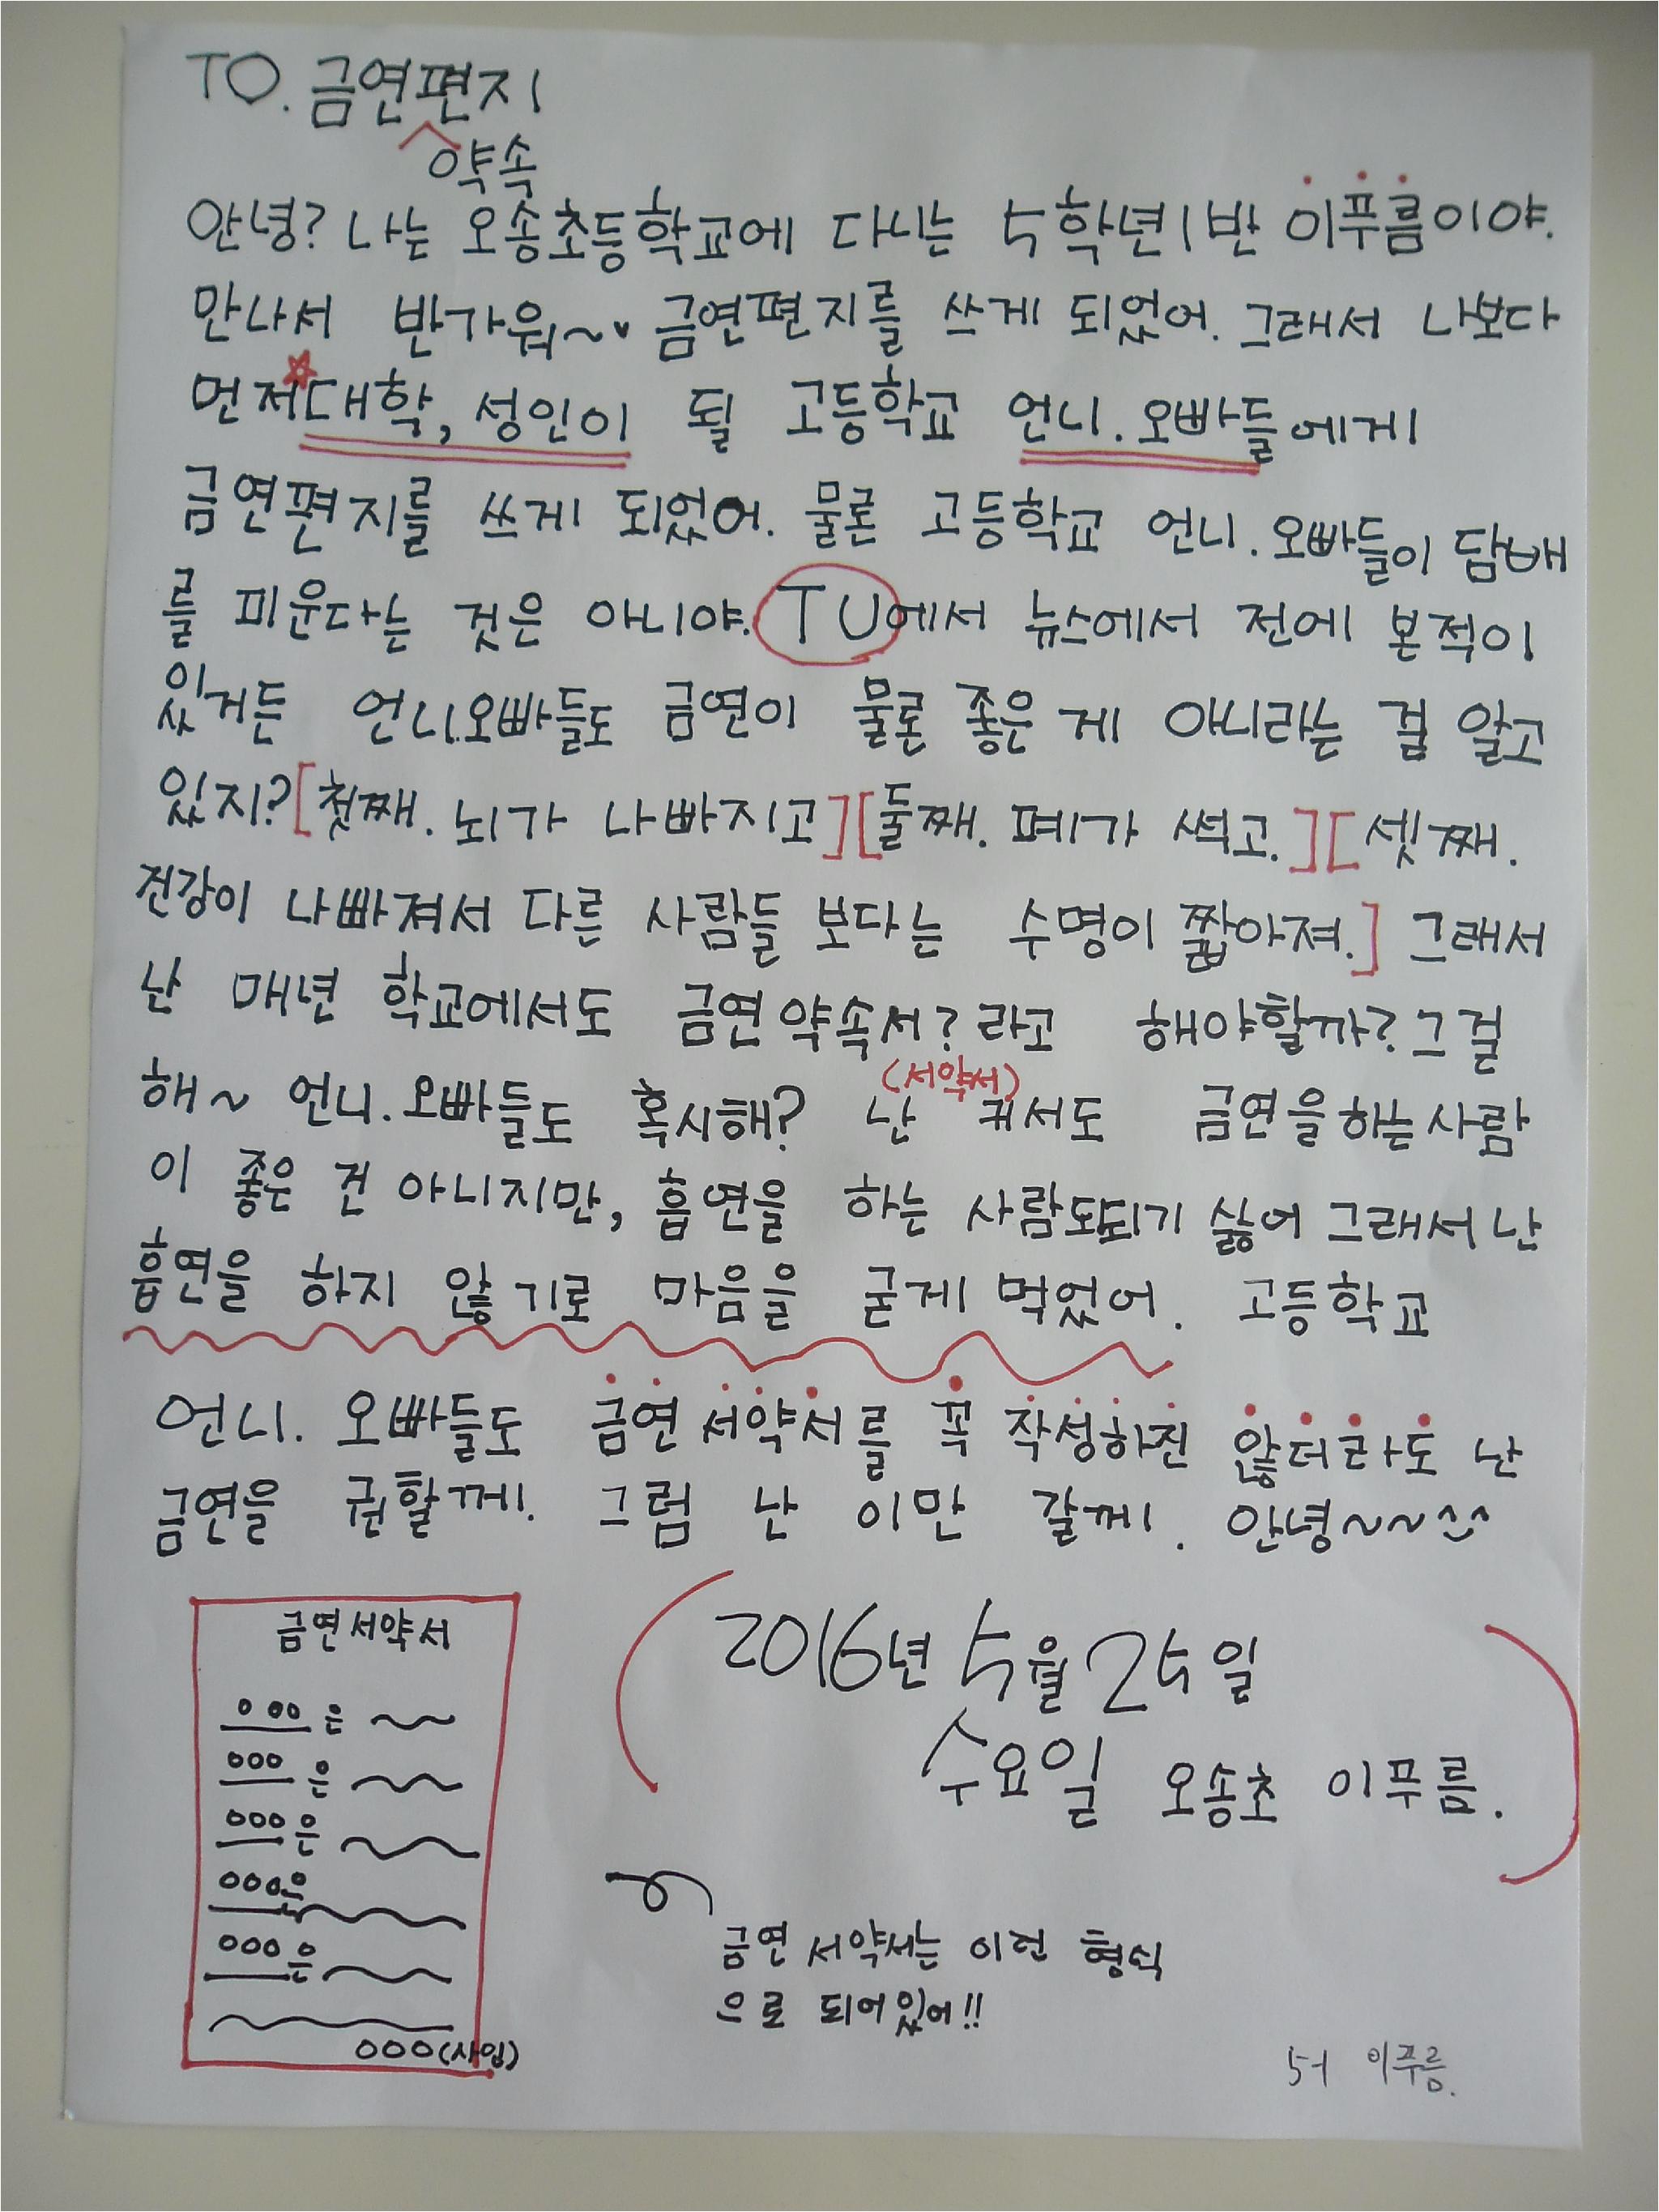 TO. 금연편지
약속
안녕? 나는 오송초등학교에 다니는 5학년1반 이푸름이야.
만나서 반가워~♥ 금연편지를 쓰게 되었어. 그래서 나보다
먼저☆대학, 성인이 될 고등학교 언니.오빠들에게
금연편지를 쓰게 되었어. 물론 고등학교 언니.오빠들이 담배
를 피운다는 것은 아니야. TU에서 뉴스에서 전에 본적이
있거든 언니.오빠들도 금연이 물론 좋은 게 아니라는 걸 알고
있지? [첫째. 뇌가 나빠지고] [둘째. 폐가 썩고.] [셋째.
건강이 나빠져서 다른 사람들 보다는 수명이 짧아져.] 그래서
난 매년 학교에서도 금연약속서? 라고 해야할까? 그걸
(서약서)
해~ 언니.오빠들도 혹시해? 난 커서도 금연을하는사람
이 좋은 건 아니지만, 흡연을 하는 사람도되기 싫어 그래서 난
흡연을 하지 않기로 마음을 굳게 먹었어. 고등학교
언니. 오빠들도 금연 서약서를 꼭 작성하진 않더라도 난
금연을 권할께. 그럼 난 이만 갈께. 안녕~~^^
금연서약서
○○○은
○○○은
○○○은
○○○은
○○○은
○○○(사인)
(2016년 5월 25일
수요일 오송초 이푸름.)
금연 서약서는 이런 형식
으로 되어있어!!
5-1 이푸름.